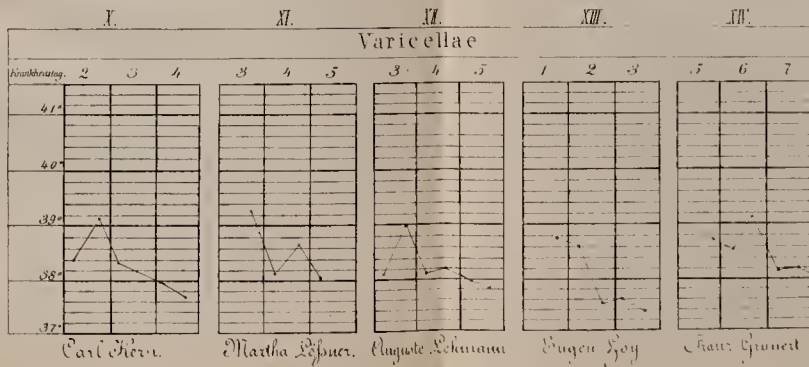 X. XI. XII. XIII. XIV.
Varicellae
Krankheitstag. 2 3 4 3 4 5 3 4 5 1 2 3 5 6 7
41°
40°
39°
38°
37°
Carl Kern. Martha Lößner. Auguste Lehmann Eugen Hoy Franz Grunert